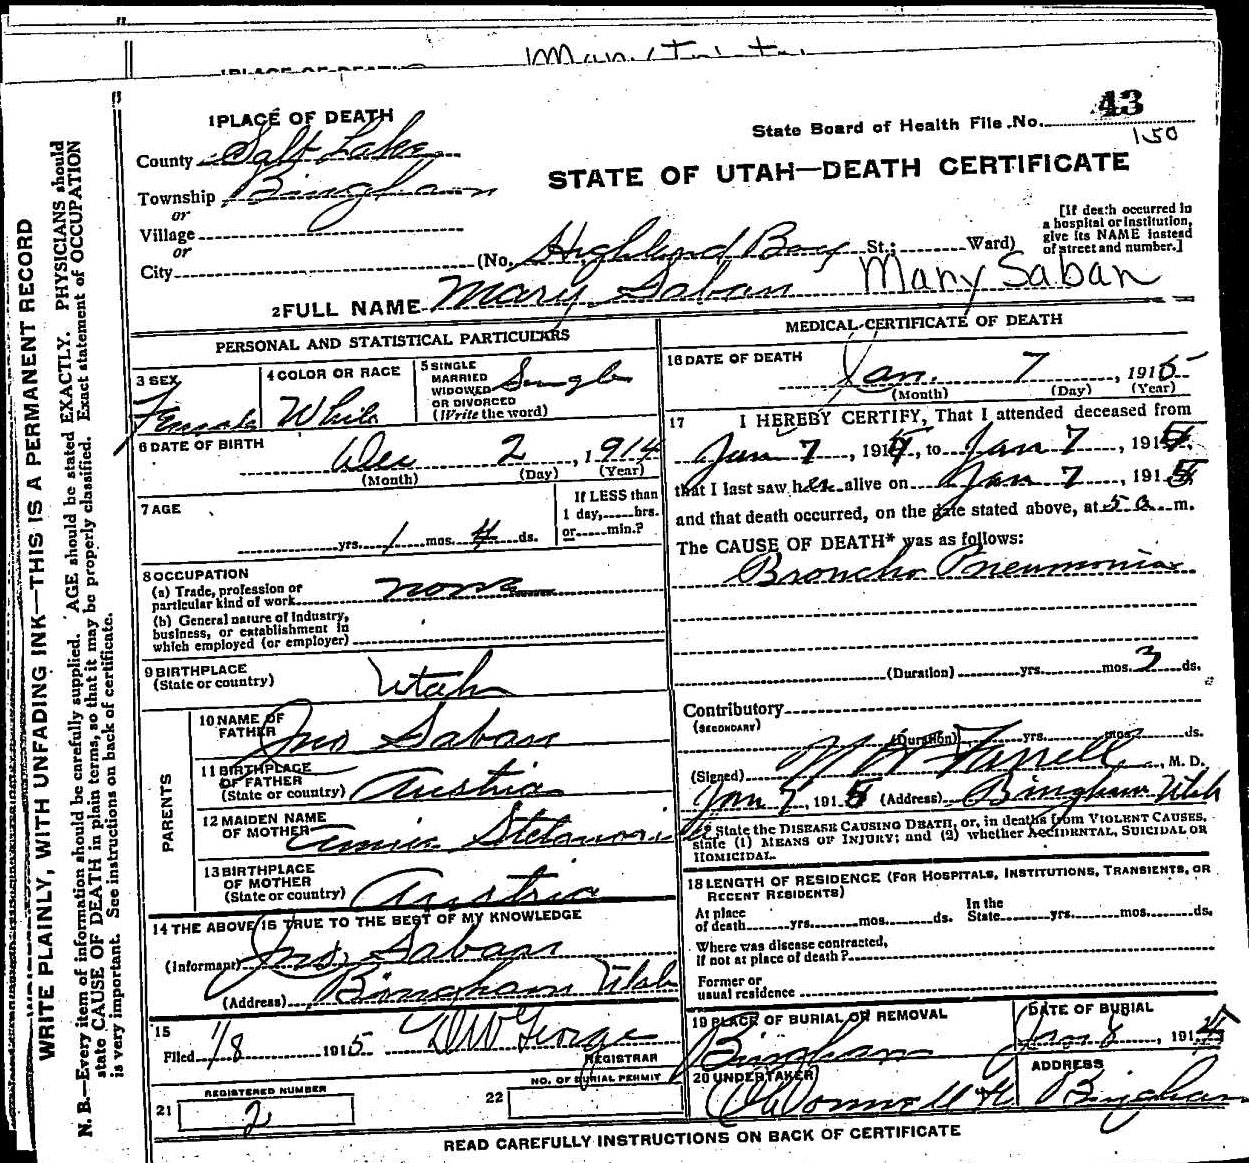 43
State Board of Health File No.
150
STATE OF UTAH—DEATH CERTIFICATE
1 PLACE OF DEATH
County Salt Lake
Township Bingham
or
Village
or
City
(No. Highland Boy St.; Ward)
[If death occurred in
a hospital or institution,
give its NAME instead
of street and number.]
2 FULL NAME Mary Saban Mary Saban
PERSONAL AND STATISTICAL PARTICULARS
3 SEX
Female
4 COLOR OR RACE
White
5 SINGLE
MARRIED
WIDOWED
OR DIVORCED
(Write the word)
Single
6 DATE OF BIRTH
Dec 2, 1914
(Month) (Day) (Year)
7 AGE
yrs. 1 mos. 4 ds.
If LESS than
1 day, hrs.
or min.?
8 OCCUPATION
(a) Trade, profession or
particular kind of work none
(b) General nature of industry,
business, or establishment in
which employed (or employer)
9 BIRTHPLACE
(State or country)
Utah
PARENTS
10 NAME OF
FATHER
Jno Saban
11 BIRTHPLACE
OF FATHER
(State or country)
Austria
12 MAIDEN NAME
OF MOTHER
13 BIRTHPLACE
OF MOTHER
(State or country)
Austria
14 THE ABOVE IS TRUE TO THE BEST OF MY KNOWLEDGE
(Informant) Jno. Saban
(Address) Bingham Utah
15
Filed 1/8 1915 D W George
REGISTRAR
21
REGISTERED NUMBER
2
22
NO. OF BURIAL PERMIT
MEDICAL CERTIFICATE OF DEATH
16 DATE OF DEATH
Jan. 7, 1915
(Month) (Day) (Year)
17 I HEREBY CERTIFY, That I attended deceased from
Jan 7, 1915, to Jan 7, 1915,
that I last saw her alive on Jan 7, 1915
and that death occurred, on the date stated above, at 5 a m.
The CAUSE OF DEATH* was as follows:
Broncho Pneumonia
(Duration) yrs. mos. 3 ds.
Contributory
(SECONDARY)
(Duration) yrs. mos. ds.
(Signed) Farrell, M. D.
Jan 7, 1915 (Address) Bingham Utah
* State the DISEASE CAUSING DEATH, or, in deaths from VIOLENT CAUSES,
state (1) MEANS OF INJURY; and (2) whether ACCIDENTAL, SUICIDAL OR
HOMICIDAL.
18 LENGTH OF RESIDENCE (FOR HOSPITALS, INSTITUTIONS, TRANSIENTS, OR
RECENT RESIDENTS)
At place
of death yrs. mos. ds.
In the
State yrs. mos. ds.
Where was disease contracted,
if not at place of death?
Former or
usual residence
19 PLACE OF BURIAL OR REMOVAL
Bingham
DATE OF BURIAL
Jan 8, 1915
20 UNDERTAKER
O'Donnell
ADDRESS
Bingham
READ CAREFULLY INSTRUCTIONS ON BACK OF CERTIFICATE
WRITE PLAINLY, WITH UNFADING INK—THIS IS A PERMANENT RECORD
N. B.—Every item of information should be carefully supplied. AGE should be stated EXACTLY. PHYSICIANS should
state CAUSE OF DEATH in plain terms, so that it may be properly classified. Exact statement of OCCUPATION
is very important. See instructions on back of certificate.